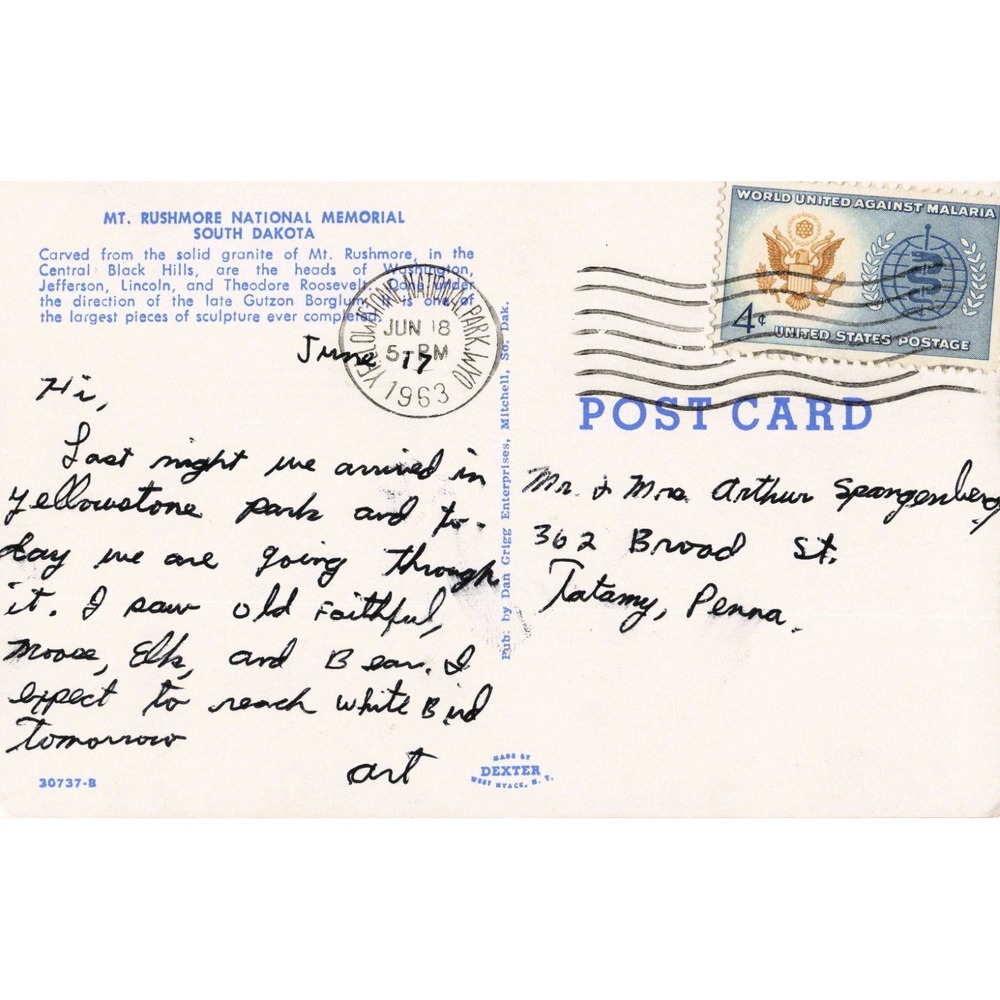 MT. RUSHMORE NATIONAL MEMORIAL
SOUTH DAKOTA
Carved from the solid granite of Mt. Rushmore, in the
Central Black Hills, are the heads of Washington,
Jefferson, Lincoln, and Theodore Roosevelt. Done under
the direction of the late Gutzon Borglum, it is one of
the largest pieces of sculpture ever completed.
June 17
Hi,
Last night we arrived in
Yellowstone Park and to-
day we are going through
it. I saw Old Faithful,
Moose, Elk, and Bear. I
expect to reach White Bird
tomorrow
Art
30737-B
YELLOWSTONE NATIONAL PARK, WYO
JUN 18
5 - PM
1963
Pub: by Dan Grigg Enterprises, Mitchell, So. Dak.
MADE BY
DEXTER
WEST NYACK, N. Y.
WORLD UNITED AGAINST MALARIA
4¢
UNITED STATES POSTAGE
POST CARD
Mr. & Mrs. Arthur Spangenberg
362 Broad St.
Tatamy, Penna.